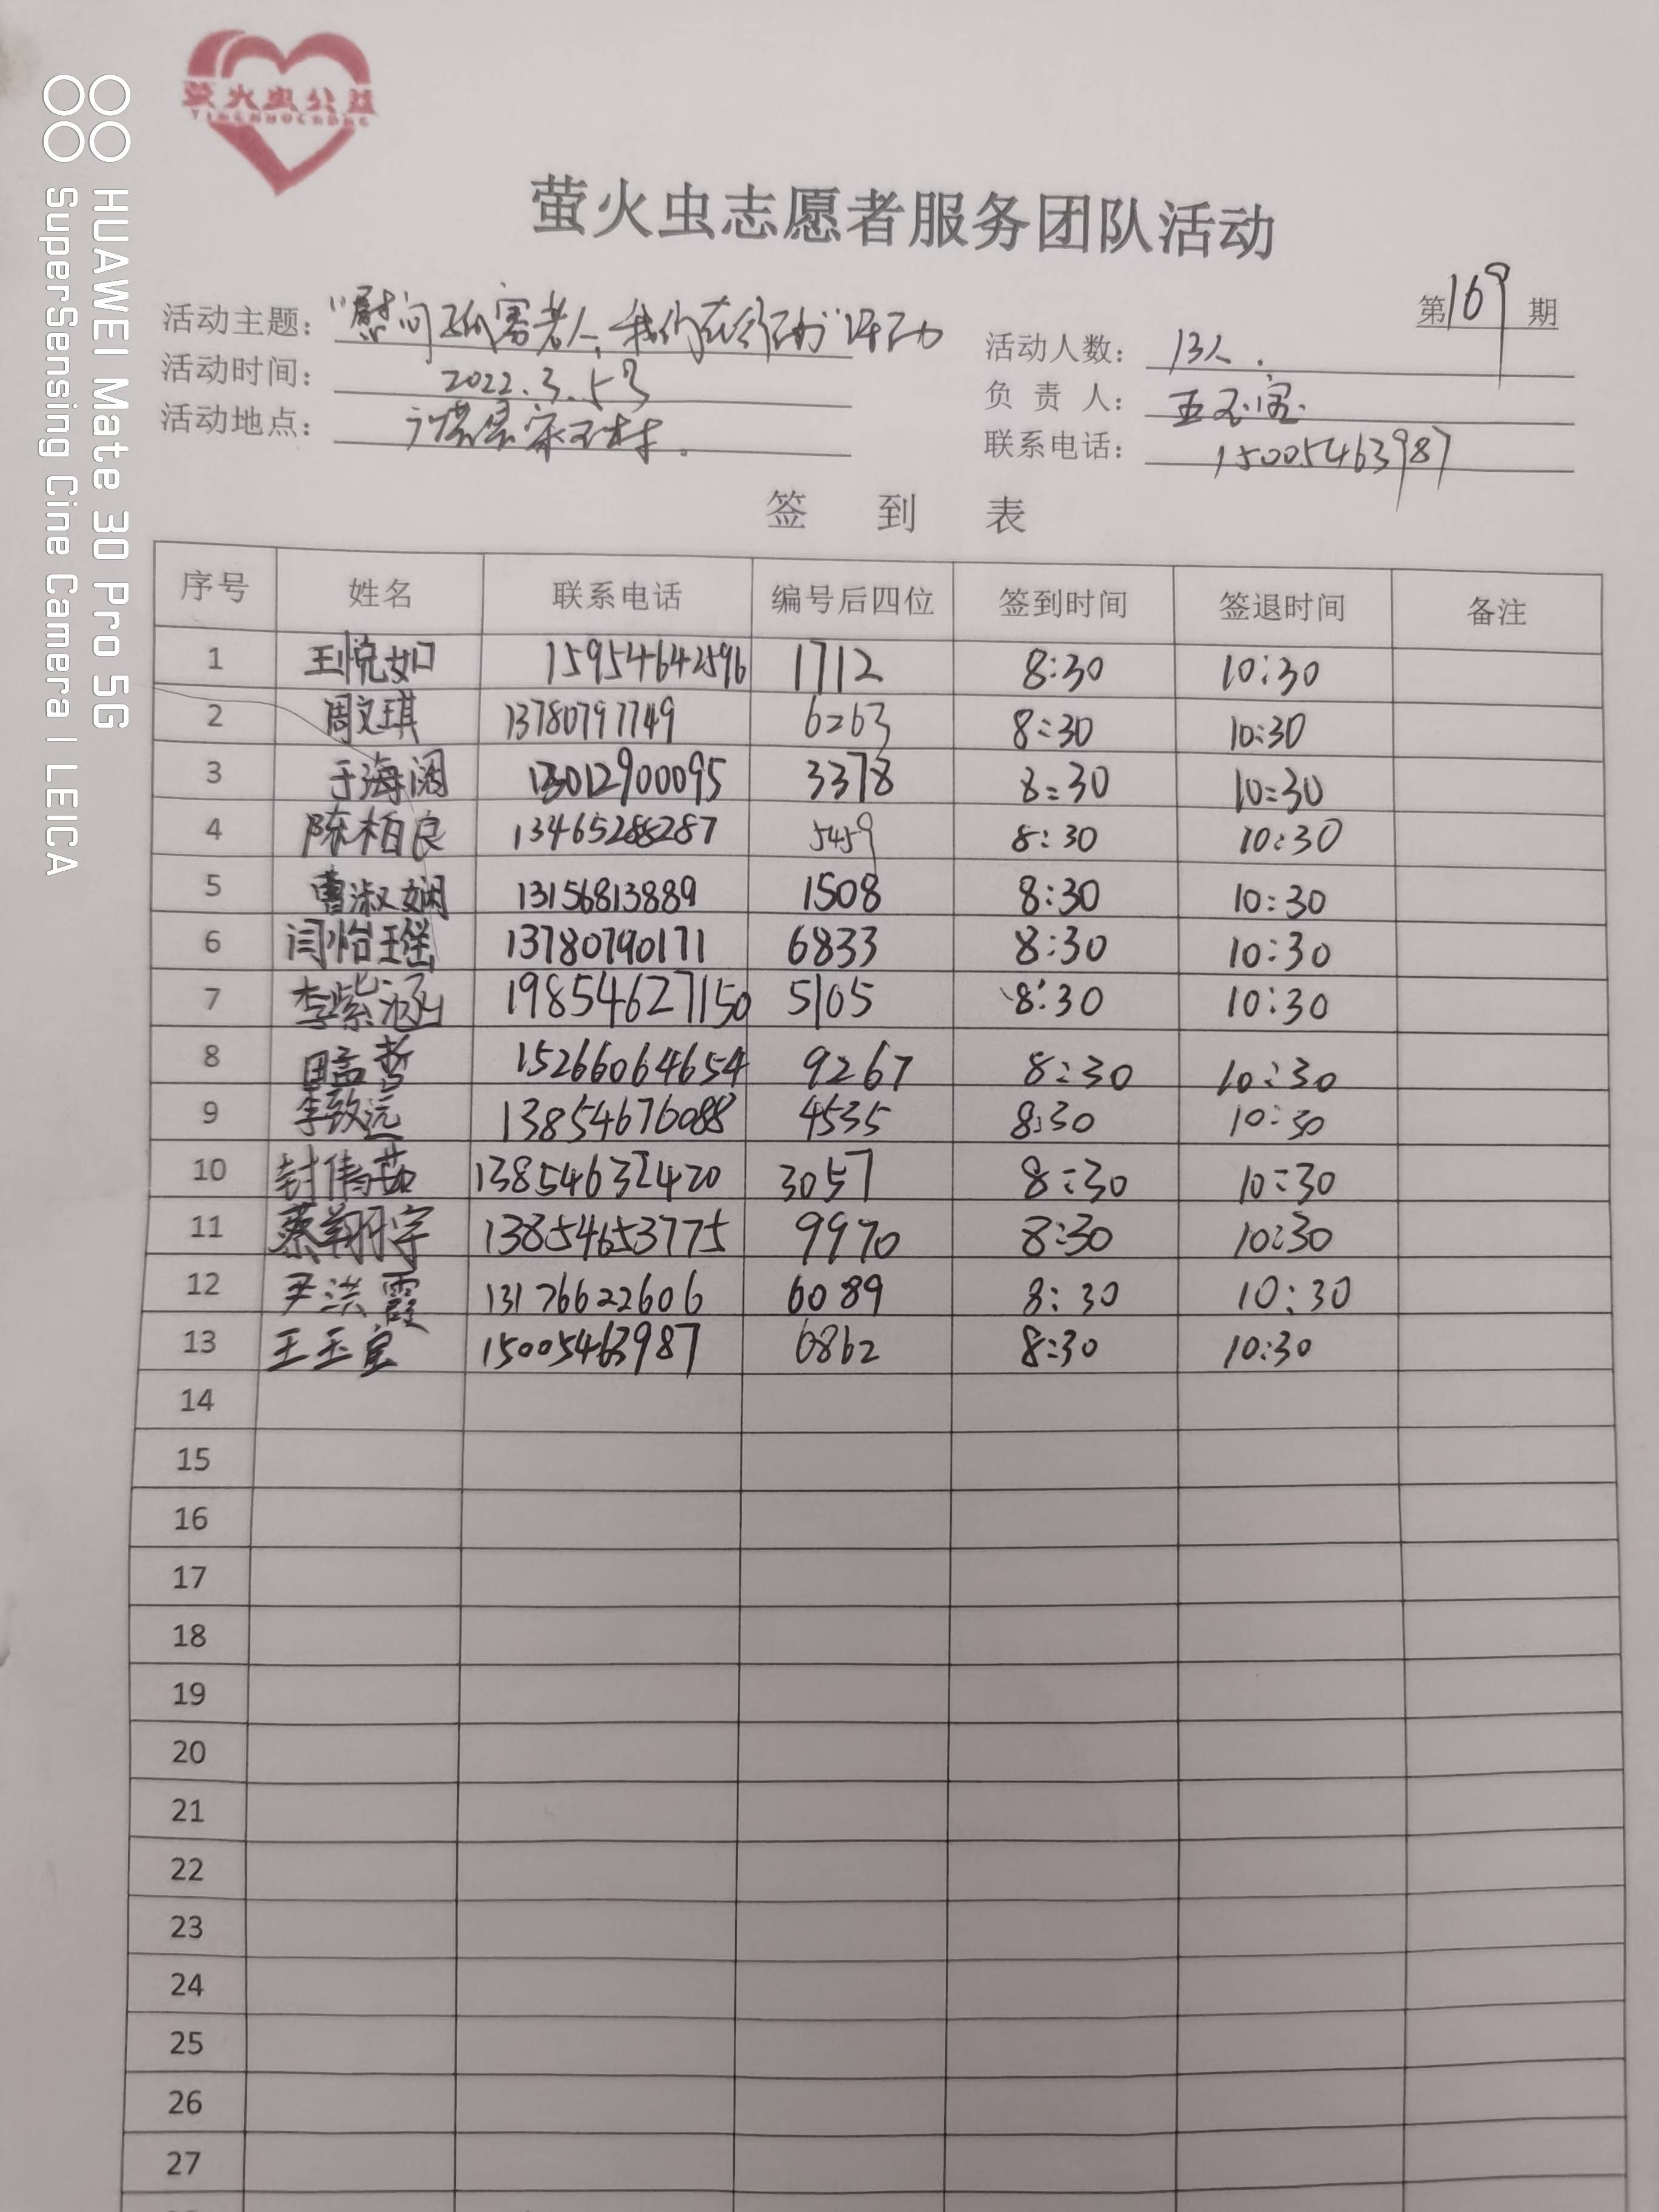 萤火虫公益
YINGHUOCHONG
萤火虫志愿者服务团队活动
第169期
活动主题：“慰问孤寡老人，我们在行动”活动
活动人数：13人.
活动时间：2022.3.5号
负责人：王玉宝
活动地点：
联系电话：15005463987
签到表
序号 姓名 联系电话 编号后四位 签到时间 签退时间 备注
1 王悦如 15954642596 1712 8:30 10:30
2 周文琪 13780797749 6263 8:30 10:30
3 于海阔 13012900095 3378 8:30 10:30
4 陈柏良 13465288287 5459 8:30 10:30
5 曹淑娴 13156813889 1508 8:30 10:30
6 闫怡瑶 13780790171 6833 8:30 10:30
7 李紫涵 19854627150 5105 8:30 10:30
8 田孟哲 15266064654 9267 8:30 10:30
9 李致远 13854676088 4535 8:30 10:30
10 封倩茹 13854632420 3057 8:30 10:30
11 蔡翔宇 13854653775 9970 8:30 10:30
12 尹洪霞 13176622606 6089 8:30 10:30
13 王玉宝 15005463987 0862 8:30 10:30
14
15
16
17
18
19
20
21
22
23
24
25
26
27
HUAWEI Mate 30 Pro 5G
SuperSensing Cine Camera | LEICA